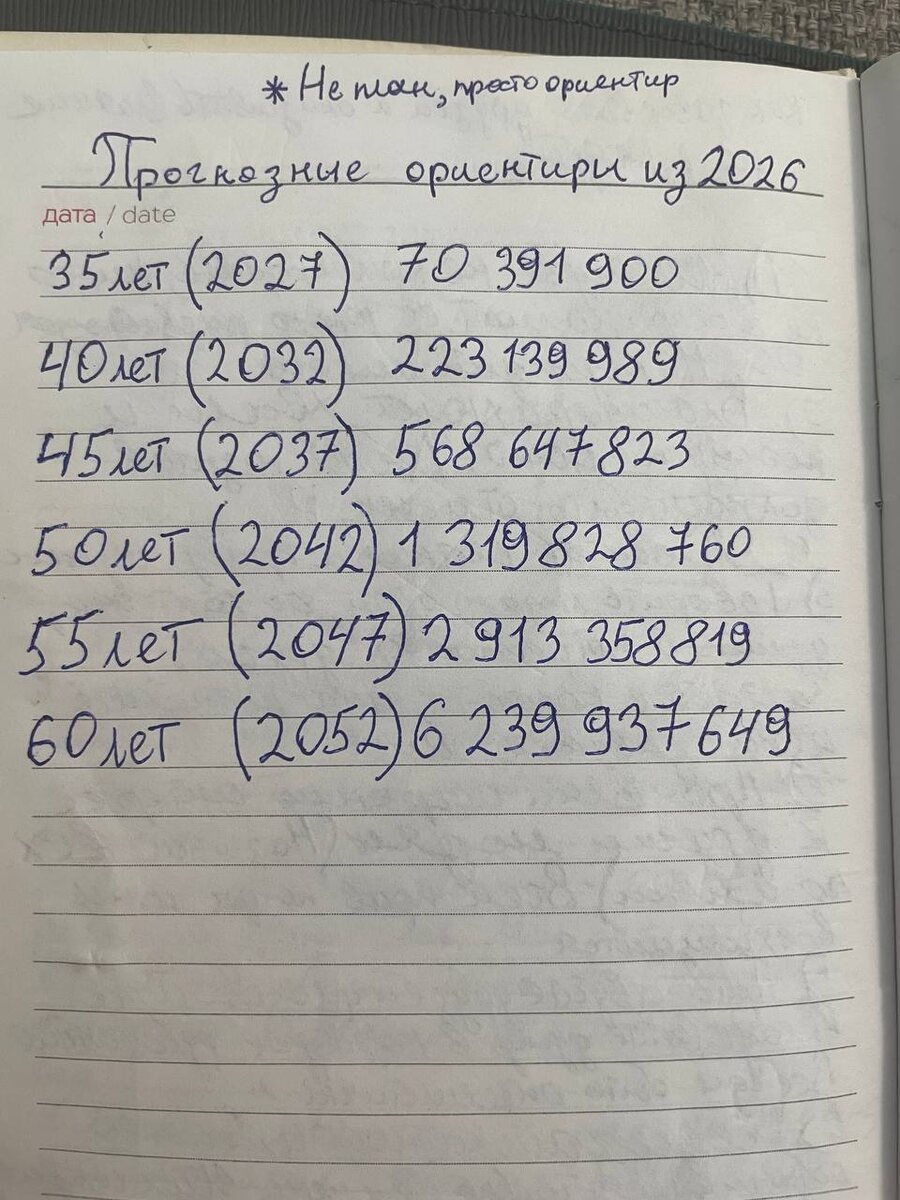 * Не план, просто ориентир
Прогнозные ориентиры из 2026
дата / date
35 лет (2027) 70 391 900
40 лет (2032) 223 139 989
45 лет (2037) 568 647 823
50 лет (2042) 1 319 828 760
55 лет (2047) 2 913 358 819
60 лет (2052) 6 239 937 649